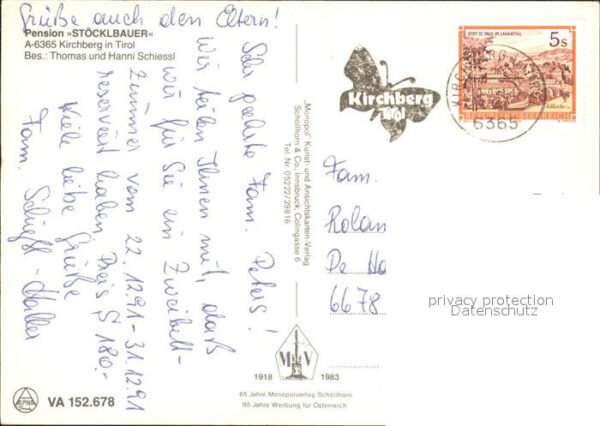 Grüße auch den Eltern!
Pension »STÖCKLBAUER«
A-6365 Kirchberg in Tirol
Bes.: Thomas und Hanni Schiessl
Sehr geehrte Fam. Peters!
Wir teilen Ihnen mit, daß
wir für Sie ein Zweibett-
zimmer vom 22.12.91-31.12.91
reserviert haben Preis S 180.-
Viele liebe Grüße
Fam. Schießl-Haller
"Monopol" Kunst- und Ansichtskarten-Verlag
Schöllhorn & Co., Innsbruck, Colingasse 6
Tel. Nr. 05222/29816
Kirchberg
Tirol
STIFT ST. PAUL IM LAVANTTAL
5s
REPUBLIK ÖSTERREICH
6365
Fam.
Rolan
De Ha
6678
privacy protection
Datenschutz
M V
1918 1983
65 Jahre Monopolverlag Schöllhorn
65 Jahre Werbung für Österreich
VA 152.678